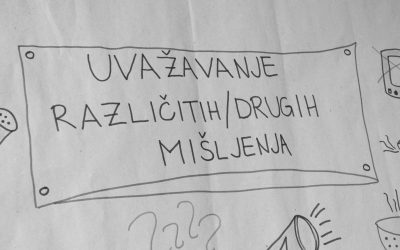 UVAŽAVANJE
RAZLIČITIH/DRUGIH
MIŠLJENJA
????